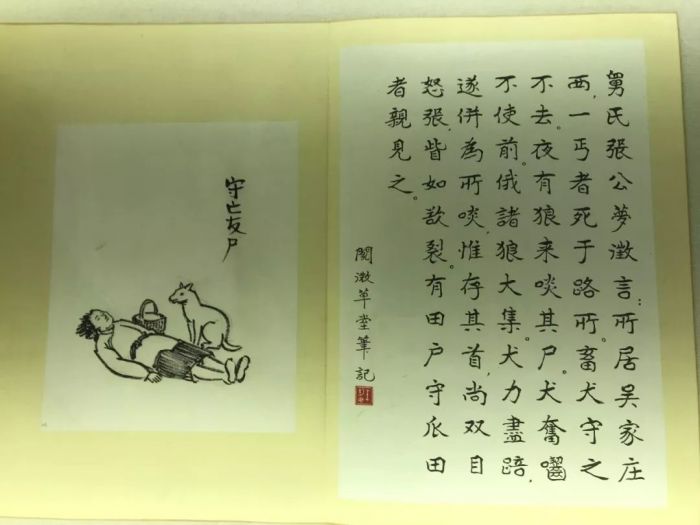 舅氏張公夢澂言：所居吳家庄
西，一丐者死于路。所畜犬守之
不去。夜有狼来啖其尸。犬奮嚙
不使前。俄諸狼大集。犬力盡踣，
遂併為所啖，惟存其首，尚双目
怒張，眥如欲裂。有田户守瓜田
者親見之。
閱微草堂筆記
守亡友尸